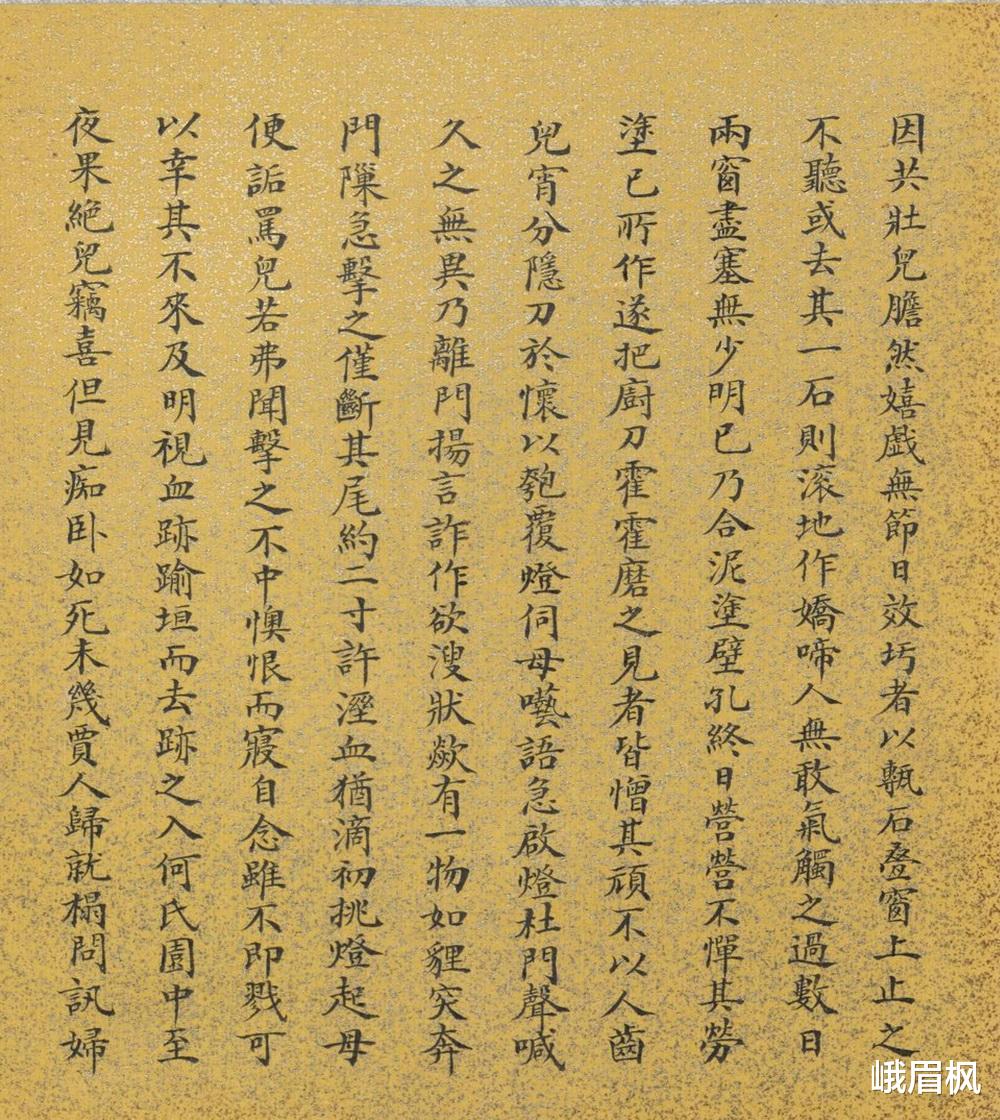 因共壯兒膽然嬉戲無節日效圬者以甎石疊窗上止之
不聽或去其一石則滚地作嬌啼人無敢氣觸之過數日
兩窗盡塞無少明已乃合泥塗壁孔終日營營不憚其勞
塗已所作遂把廚刀霍霍磨之見者皆憎其頑不以人齒
兒宵分隱刀於懷以匏覆燈伺母囈語急啟燈杜門聲喊
久之無異乃離門揚言詐作欲溲狀歘有一物如貍突奔
門隟急擊之僅斷其尾約二寸許溼血猶滴初挑燈起母
便詬罵兒若弗聞擊之不中懊恨而寢自念雖不即戮可
以幸其不來及明視血跡踰垣而去跡之入何氏園中至
夜果絕兒竊喜但見痴卧如死未幾賈人歸就榻問訊婦
峨眉枫